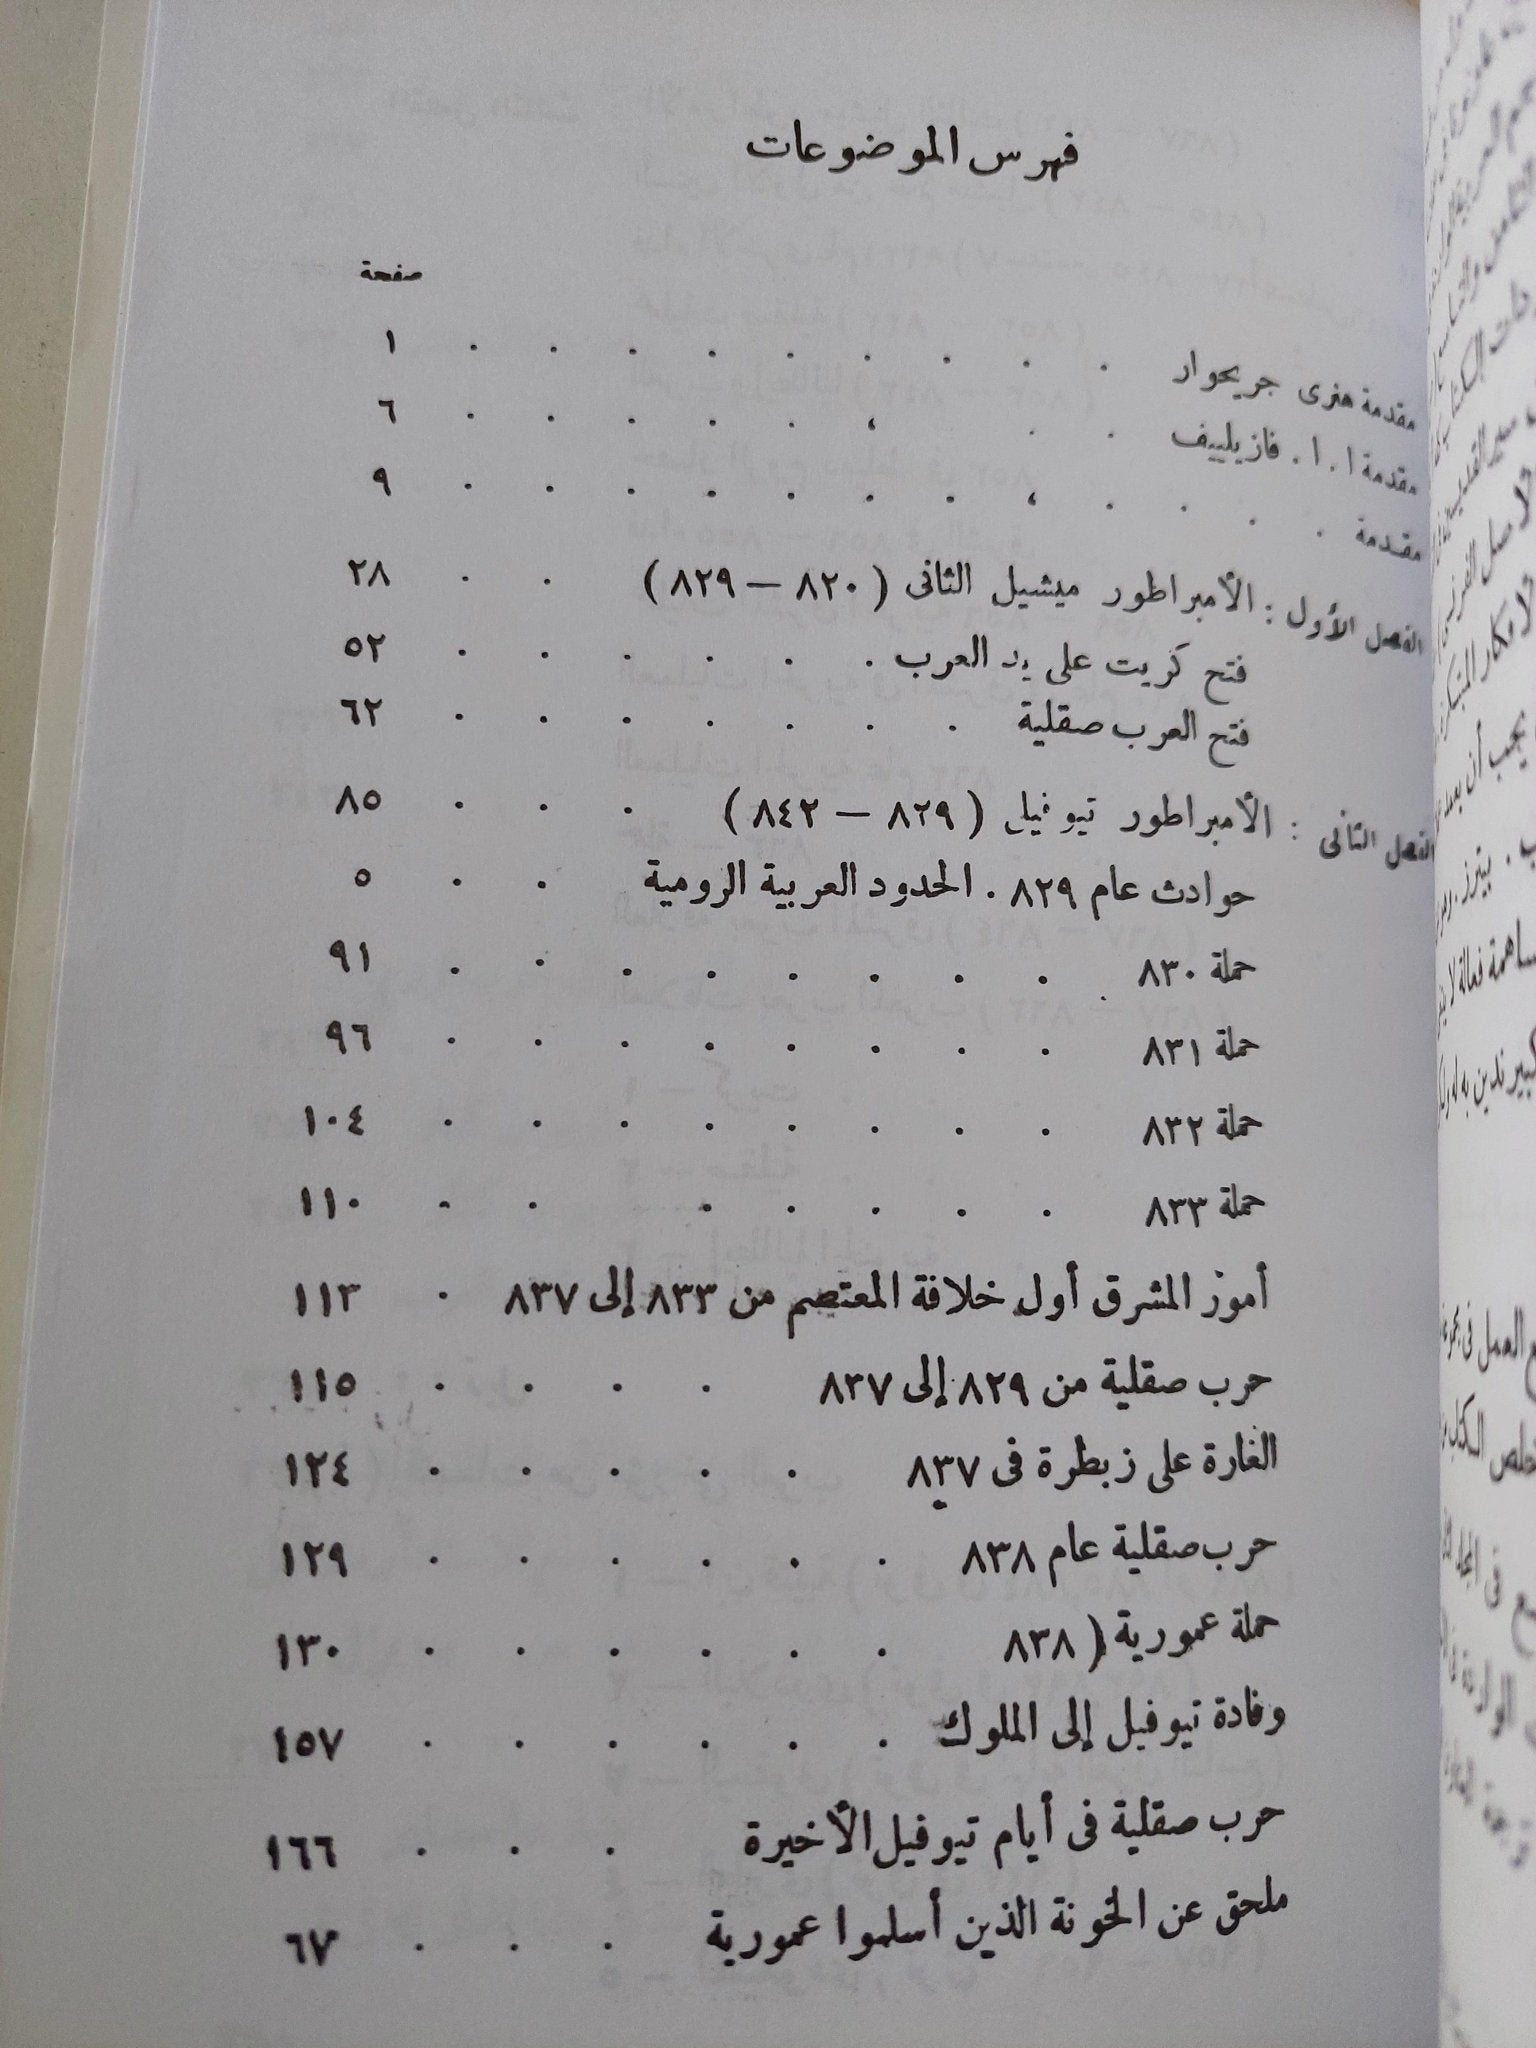 فهرس الموضوعات
صفحة
مقدمة هنرى جريجوار . . . . . . . . . ١
مقدمة ا . ا . فازيلييف . . . . . . . . ٦
مقدمة . . . . . . . . . . . . ٩
الفصل الأول : الأمبراطور ميشيل الثانى ( ٨٢٠ — ٨٢٩ ) . . ٢٨
فتح كريت على يد العرب . . . . . . ٥٢
فتح العرب صقلية . . . . . . . ٦٢
الفصل الثانى : الأمبراطور تيوفيل ( ٨٢٩ — ٨٤٢ ) . . . ٨٥
حوادث عام ٨٢٩ . الحدود العربية الرومية . . ٥
حملة ٨٣٠ . . . . . . . . ٩١
حملة ٨٣١ . . . . . . . . ٩٦
حملة ٨٣٢ . . . . . . . . ١٠٤
حملة ٨٣٣ . . . . . . . ١١٠
أمور المشرق أول خلافة المعتصم من ٨٣٣ إلى ٨٣٧ . ١١٣
حرب صقلية من ٨٢٩ إلى ٨٣٧ . . . . ١١٥
الغارة على زبطرة فى ٨٣٧ . . . . . ١٢٤
حرب صقلية عام ٨٣٨ . . . . . . ١٢٩
حملة عمورية ( ٨٣٨ . . . . . . ١٣٠
وفادة تيوفيل إلى الملوك . . . . . . ١٥٧
حرب صقلية فى أيام تيوفيل الأخيرة . . . ١٦٦
ملحق عن الخونة الذين أسلموا عمورية . . . ٦٧